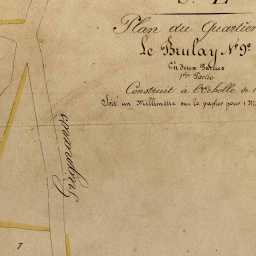 Plan du Quartier
Le Brulay N° 9e
En deux Parties
1ère Partie
Construit à l'échelle de 1
Soit un Millimètre sur le papier pour 1 M
7